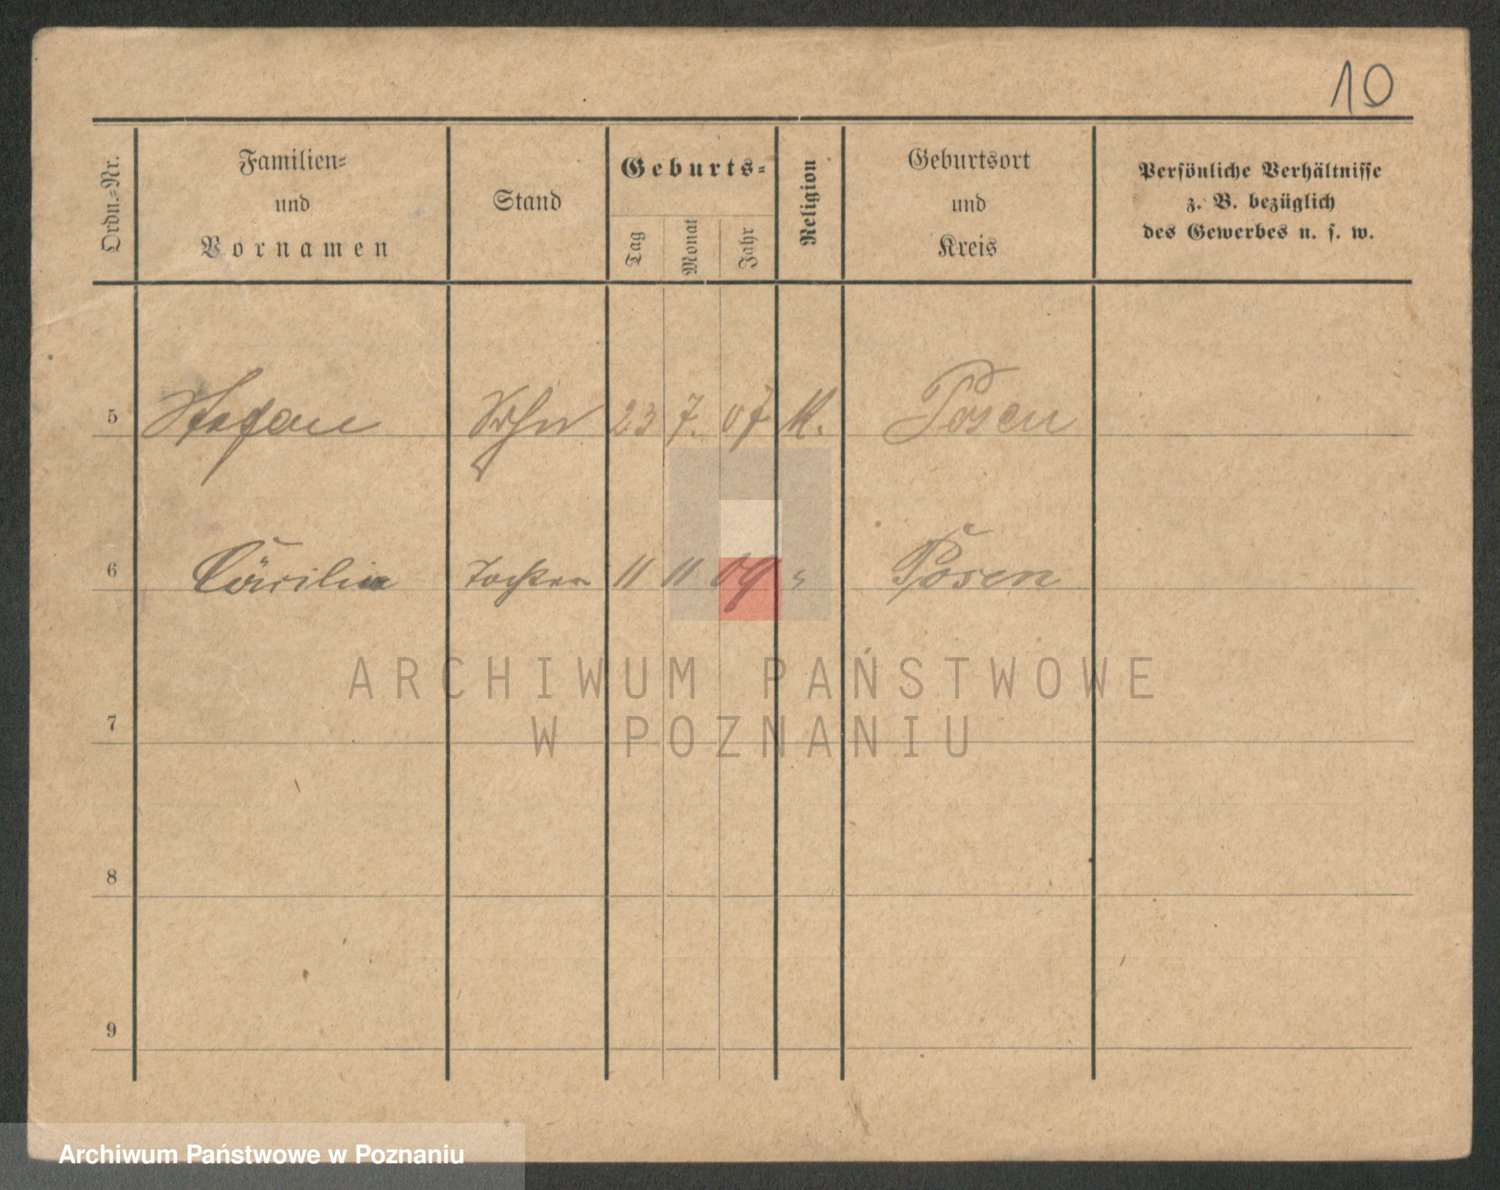 10
Ordn.-Nr.
Familien-
und
Vornamen
Stand
Geburts-
Tag
Monat
Jahr
Religion
Geburtsort
und
Kreis
Persönliche Verhältnisse
z. B. bezüglich
des Gewerbes u. s. w.
5 Stefan Sohn 23 7. 07 K. Posen
6 Cäcilia Tochter 11 11 09 " Posen
ARCHIWUM PAŃSTWOWE
W POZNANIU
7
8
9
Archiwum Państwowe w Poznaniu